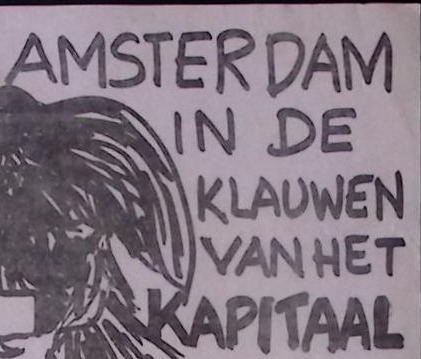 AMSTERDAM
IN DE
KLAUWEN
VAN HET
KAPITAAL